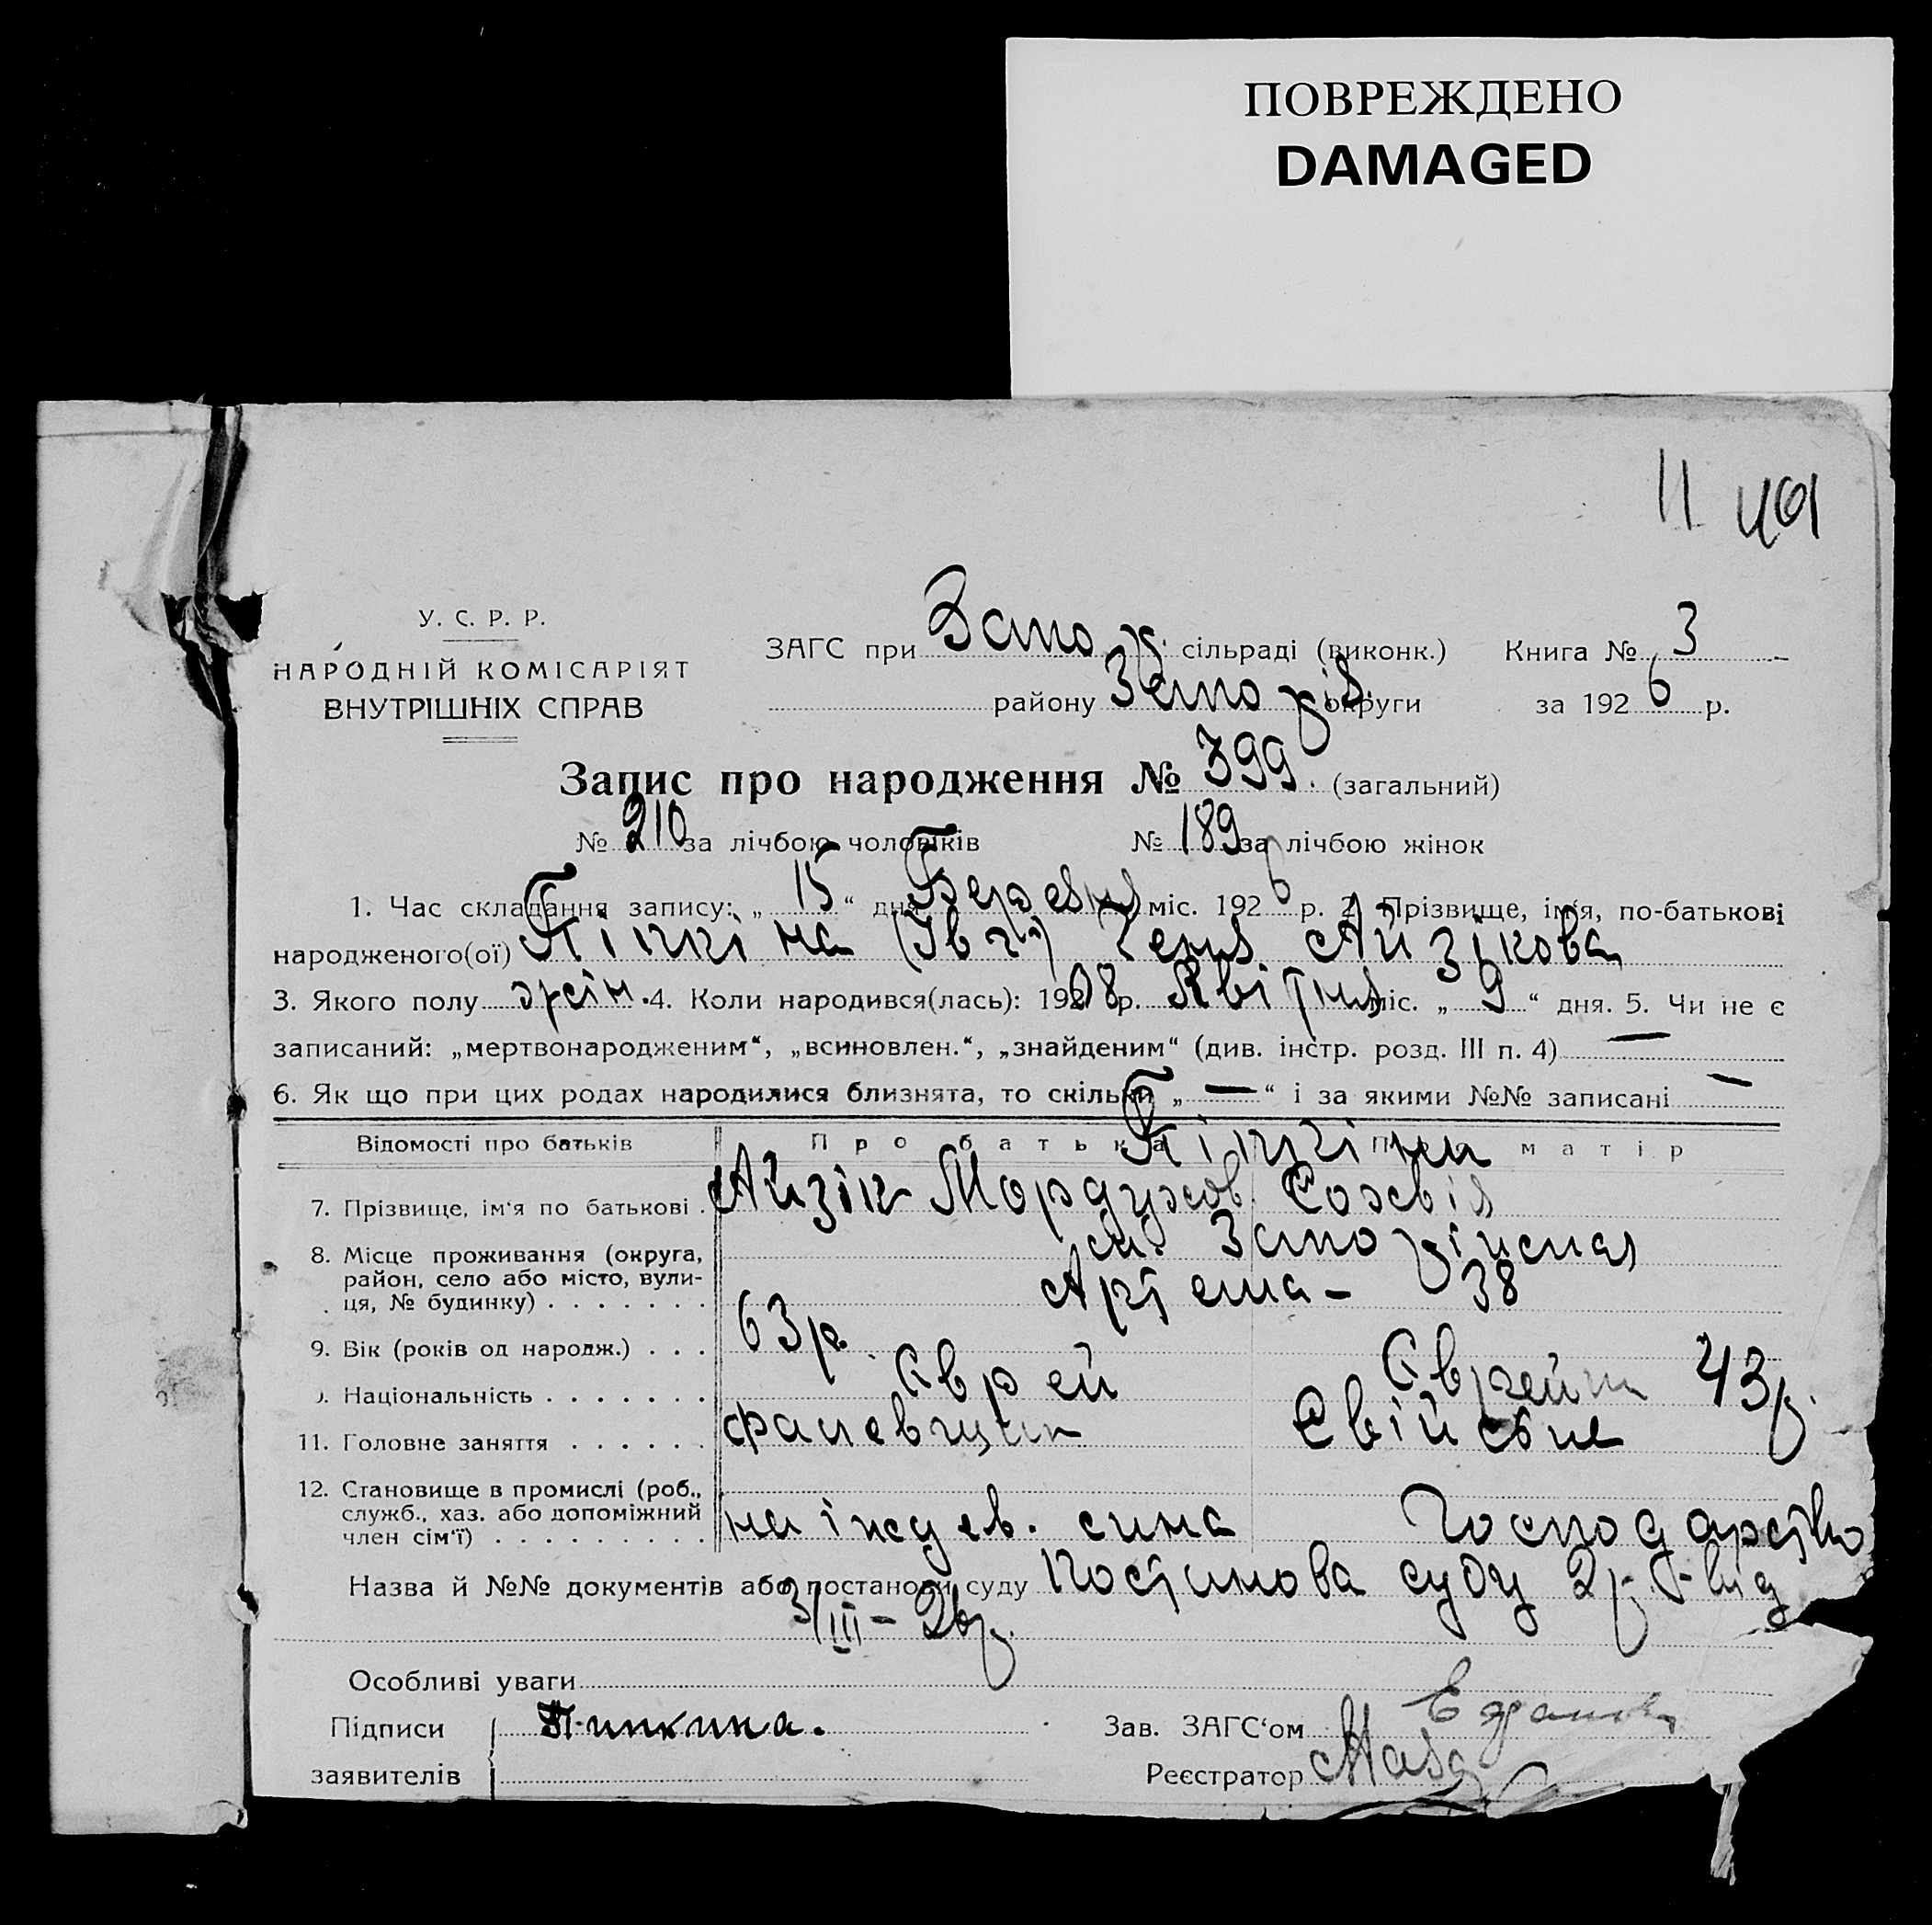 ПОВРЕЖДЕНО
DAMAGED
11
У. С. Р. Р.
НАРОДНІЙ КОМІСАРІЯТ
ВНУТРІШНІХ СПРАВ
ЗАГС при Запо р. сільраді (виконк.) Книга № 3
району Запорiз. округи за 1926 р.
Запис про народження № 399. (загальний)
№ 210 за лічбою чоловіків № 189 за лічбою жінок
1. Час складання запису: „ 15 “ дня Березня міс. 1926 р. 2. Прізвище, ім‘я, по-батькові
народженого(ої) Пінкіна Айзікова
3. Якого полу жін. 4. Коли народився(лась): 1908 р. Квітня міс. „ 9 “ дня. 5. Чи не є
записаний: „мертвонародженим“, „всиновлен.“, „знайденим“ (див. інстр. розд. III п. 4) —
6. Як що при цих родах народилися близнята, то скільки „ — “ і за якими №№ записані —
Відомості про батьків Про батька Про матір
Пінкіни
7. Прізвище, ім‘я по батькові . Айзік Мордухов.
8. Місце проживання (округа, район, село або місто, вулиця, № будинку) . . . . . . . м. Запоріжжя
Артема – 38
9. Вік (років од народж.) . . . 63 р. 43 р.
Національність . . . . . . . Єврей Єврейка
11. Головне заняття . . . . . . Свійське
12. Становище в промислі (роб., служб., хаз. або допоміжний член сім‘ї) . . . . . . . . . на іждев. сина Господарство
Назва й №№ документів або постанови суду Постанова суду від
3/III – 26 р.
Особливі уваги
Підписи Пинкина. Зав. ЗАГС‘ом
заявителів Реєстратор